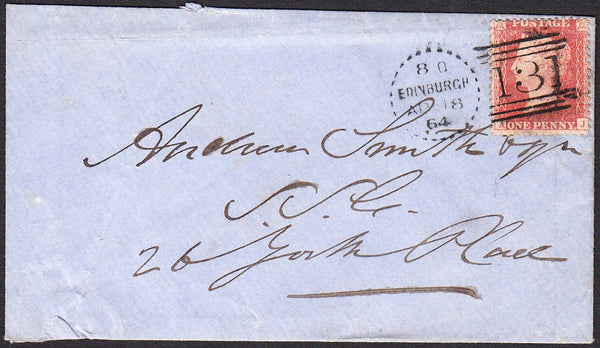 POSTAGE
ONE PENNY J
131
8 O
EDINBURGH
AP 18
64
Andrew Smith Esqr
S.S.C.
26 York Place